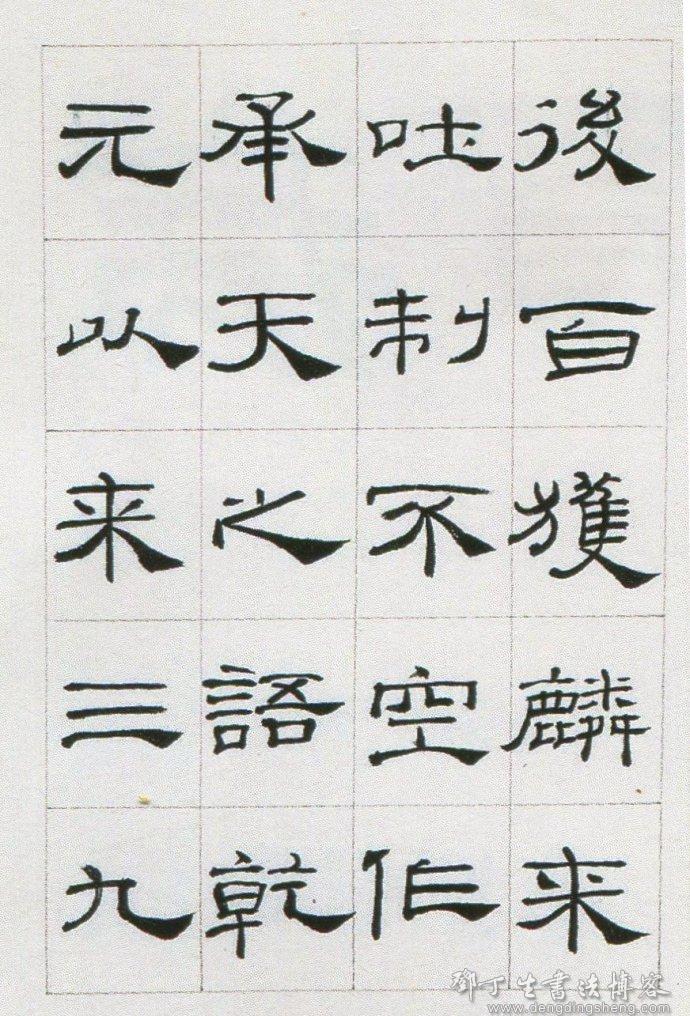 後百獲麟来
吐制不空作
承天之語乾
元以来三九
鄧丁生書法博客
www.dengdingsheng.com